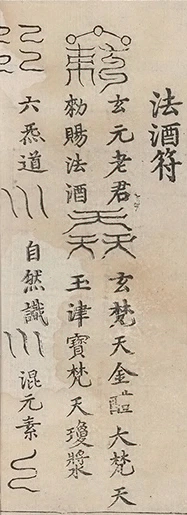 法酒符
玄元老君 玄梵天金醞大梵天
勅賜法酒 天天天 玉津寶梵天瓊漿
六炁道 自然識 混元素